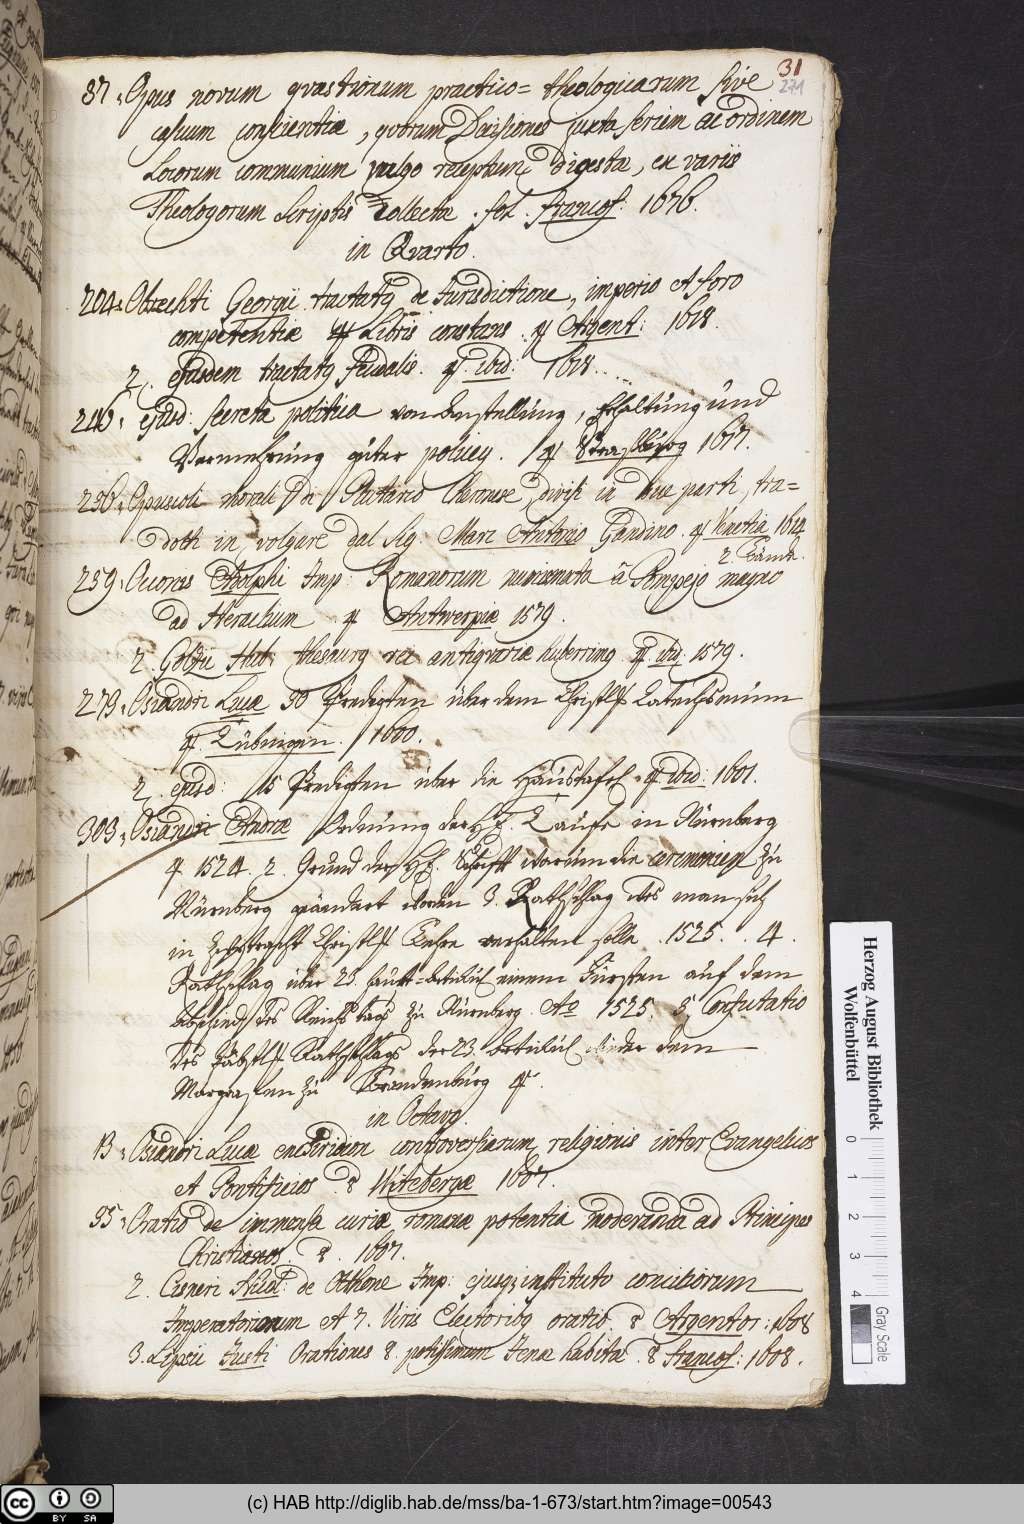 31
271
37. Opus novum qvæstionum practico= theologicarum sive
casuum conscientiæ, qvorum Decisiones juxta seriem ac ordinem
Locorum communium vulgo receptum digestæ, ex variis
Theologorum Scriptis Collectæ. fol. Francof: 1676.
in Qvarto.
204. Obrechti Georgii tractatq de Jurisdictione, imperio et foro
competentiæ 4 Libris constans. 4 Argent: 1618.
2. ejusdem tractatq feudalis. 4. ibid: 1618.
246. ejusd: secreta politica von Anstellung, Erhaltung und
Vermehrung guter policey. 4 Strasburg 1617.
256. Opuscoli morali Di Plutarco Cheronese, divisi in due parti, tra=
dotti in volgare dal Sig. Marc Antonio Gandino. 4 Venetia 1614
2. Bände.
259. Occones Adolphi Imp: Romanorum numismata à Pompejo magno
ad Heraclium 4 Antwerpiæ 1579.
2. Golzii Hub: thesaurq rei antiqvariæ huberrimq 4 ibid. 1579.
279. Osiandri Lucæ 50 Predigten über dem Christl. Catechismum
4. Tübingen. 1600.
2. ejusd: 15 Predigten über die Haustafel. 4 ibid: 1601.
303. Osiandri Andreæ Ordnung der H. Taufe in Nürnberg
4. 1524. 2. Grund der H. Schrifft warum die ceremonien zu
Nürnberg geändert worden 3. Rathschlag wes man sich
in Zwytracht Christl. Lehre verhalten solle. 1525. 4.
Rathschlag über 23. haupt=Articul einem Fürsten auf dem
Abschied des Reichstags zu Nürnberg. Ao 1525. 5. Confutatio
des Päbstl. Rathschlags der 23. Articul wieder dem
Margrafen zu Brandenburg 4.
in Octavo.
13. Osiandri Lucæ enchiridion controversiarum religionis inter Evangelicos
et Pontificios. 8 Witebergæ 1607.
55. Oratio de immensa curiæ romanæ potentia moderanda ad Principes
Christianos. 8. 1607.
2. Cisneri Nicol: de Othone Imp: ejusq instituto comitiorum
Imperatoriorum et 7. Viris Electoribq oratio. 8 Argentor: 1608
3. Lipsii Justi Orationes 8. potissimum Jenæ habitæ. 8 Francof: 1608.
Herzog August Bibliothek
Wolfenbüttel
0 1 2 3 4
Gray Scale
cc BY SA
(c) HAB http://diglib.hab.de/mss/ba-1-673/start.htm?image=00543